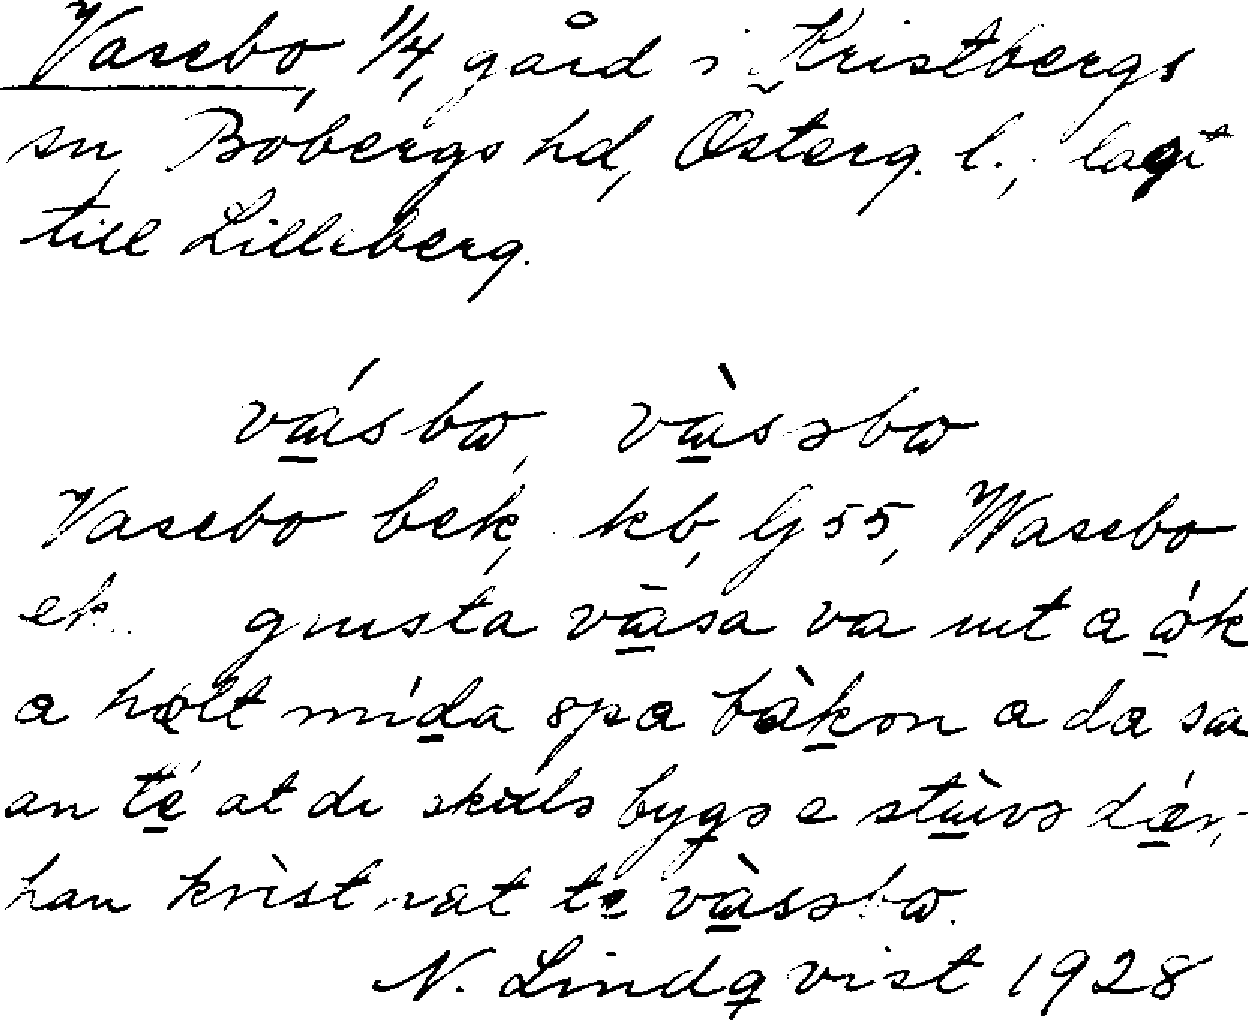 Vasebo, 1/4, gård i Kristbergs
sn, Bobergs hd, Österg. l., lagt
till Lilleberg.
vásbω, vàsəbω
Vasebo bek, kb, Gj 55, Wasebo
ek. gusta vāsa va ut a ók
a hølt mída spa bàkən a da sa
an té at de skulə bygə e stùvə dǽr,
han kristnat te vàsəbω.
N. Lindqvist 1928